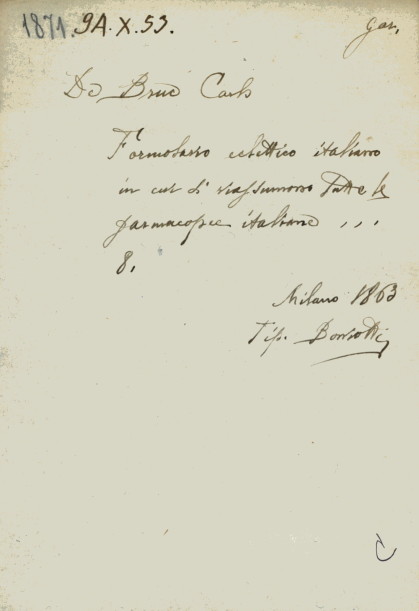 1871. 9A.X.53. gar.
De Bruc Carlo
Formolario eclettico italiano
in cui si riassumono tutte le
farmacopee italiane , , ,
8.
Milano 1863
Tip.
C